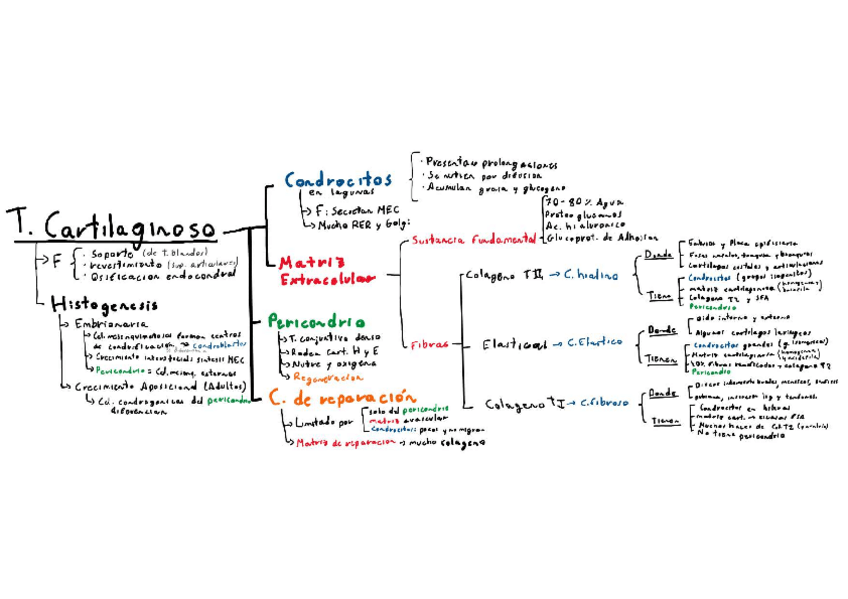 T. Cartilaginoso
F
· Soporte (de T. blandos)
· revestimiento (sup. articulares)
· Osificación endocondral
Histogenesis
Embrionaria
Cel. mesenquimatosas forman centros
de condrificación → condroblastos
Crecimiento intersticial: sintesis MEC
Pericondrio = Cel. mesenq. externas
Crecimiento Aposicional (Adultos)
Cel. condrogenicas del pericondrio
diferencian
Condrocitos
en lagunas
F: Secretan MEC
Mucho RER y Golgi
· Presentan prolongaciones
· Se nutren por difusion
· Acumulan grasa y glucogeno
Matriz
Extracelular
Sustancia Fundamental
70-80% Agua
Proteoglucanos
Ac. hialuronico
Glucoprot. de Adhesion
Fibras
Colageno T II → C. hialino
Donde
Esbozo y Placa epifisiaria
Fosas nasales, traquea y bronquios
Cartilagos costales y articulaciones
Tienen
Condrocitos (grupos isogenicos)
matriz cartilaginosa
Colageno T2 y SFA
Pericondrio
Elasticas → C. Elastico
Donde
oido interno y externo
Algunos cartilagos laringeos
Tienen
Condrocitos grandes (g. isogenicos)
Matriz cartilaginosa
Fibras ramificadas y colageno T2
Pericondrio
Colageno T I → C. fibroso
Donde
Discos intervertebrales, meniscos,
pubiana, insercion lig y tendones
Tienen
Condrocitos en hileras
matriz cart. → escasa SFA
Muchos haces de Col T2 (paralelo)
No tiene pericondrio
Pericondrio
T. conjuntivo denso
Rodea Cart. H y E
Nutre y oxigena
Regeneracion
C. de reparación
Limitado por
solo del pericondrio
matriz avascular
Condrocitos: pocos y no migran
Matriz de reparacion → mucho colageno